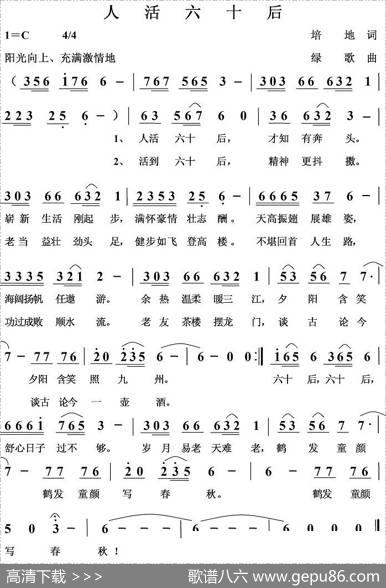 人 活 六 十 后
1=C 4/4 培 地 词
阳光向上、充满激情地 绿 歌 曲
( 356 i76 6 - | 767 565 3 - | 303 66 632 1 |
223 25 6 - ) | 63 567 6 - | 03 35 675 3 |
1、人活 六十 后， 才知 有奔 头。
2、活到 六十 后， 精神 更抖 擞。
303 66 632 1 | 2353 25 6 - | 6665 37 |
崭新 生活 刚起 步， 满怀豪情 壮志 酬。 天高振翅 展雄 姿，
老当 益壮 劲头 足， 健步如飞 登高 楼。 不堪回首 人生 路，
3335 321 - | 03 03 663 1 | 53 56 7 7· |
海阔扬帆 任遨 游。 余热 温柔 暖三 江， 夕阳 含笑
功过成败 顺水 流。 老友 茶楼 摆龙 门， 谈古 论今
7 - 77 76 | 20 235 6 - | 6 - 0 0 :| i65 6 365 6 |
夕阳 含笑 照 九 州。 六十 后， 六十 后，
谈古 论今 一 壶 酒。
666i 765 3 - | 03 03 223 1 | 53 56 7 7· |
舒心日子 过不 够。 岁月 易老 天难 老， 鹤发 童颜
7 - 77 76 | 20 235 6 - | 6 - 77 76 |
鹤发 童颜 写 春 秋。 鹤发 童颜
5 0 03· | 6 - - - | 6 - - - | 6 0 0 0 ‖
写 春 秋！
高清下载 >>> 歌谱八六 www.gepu86.com